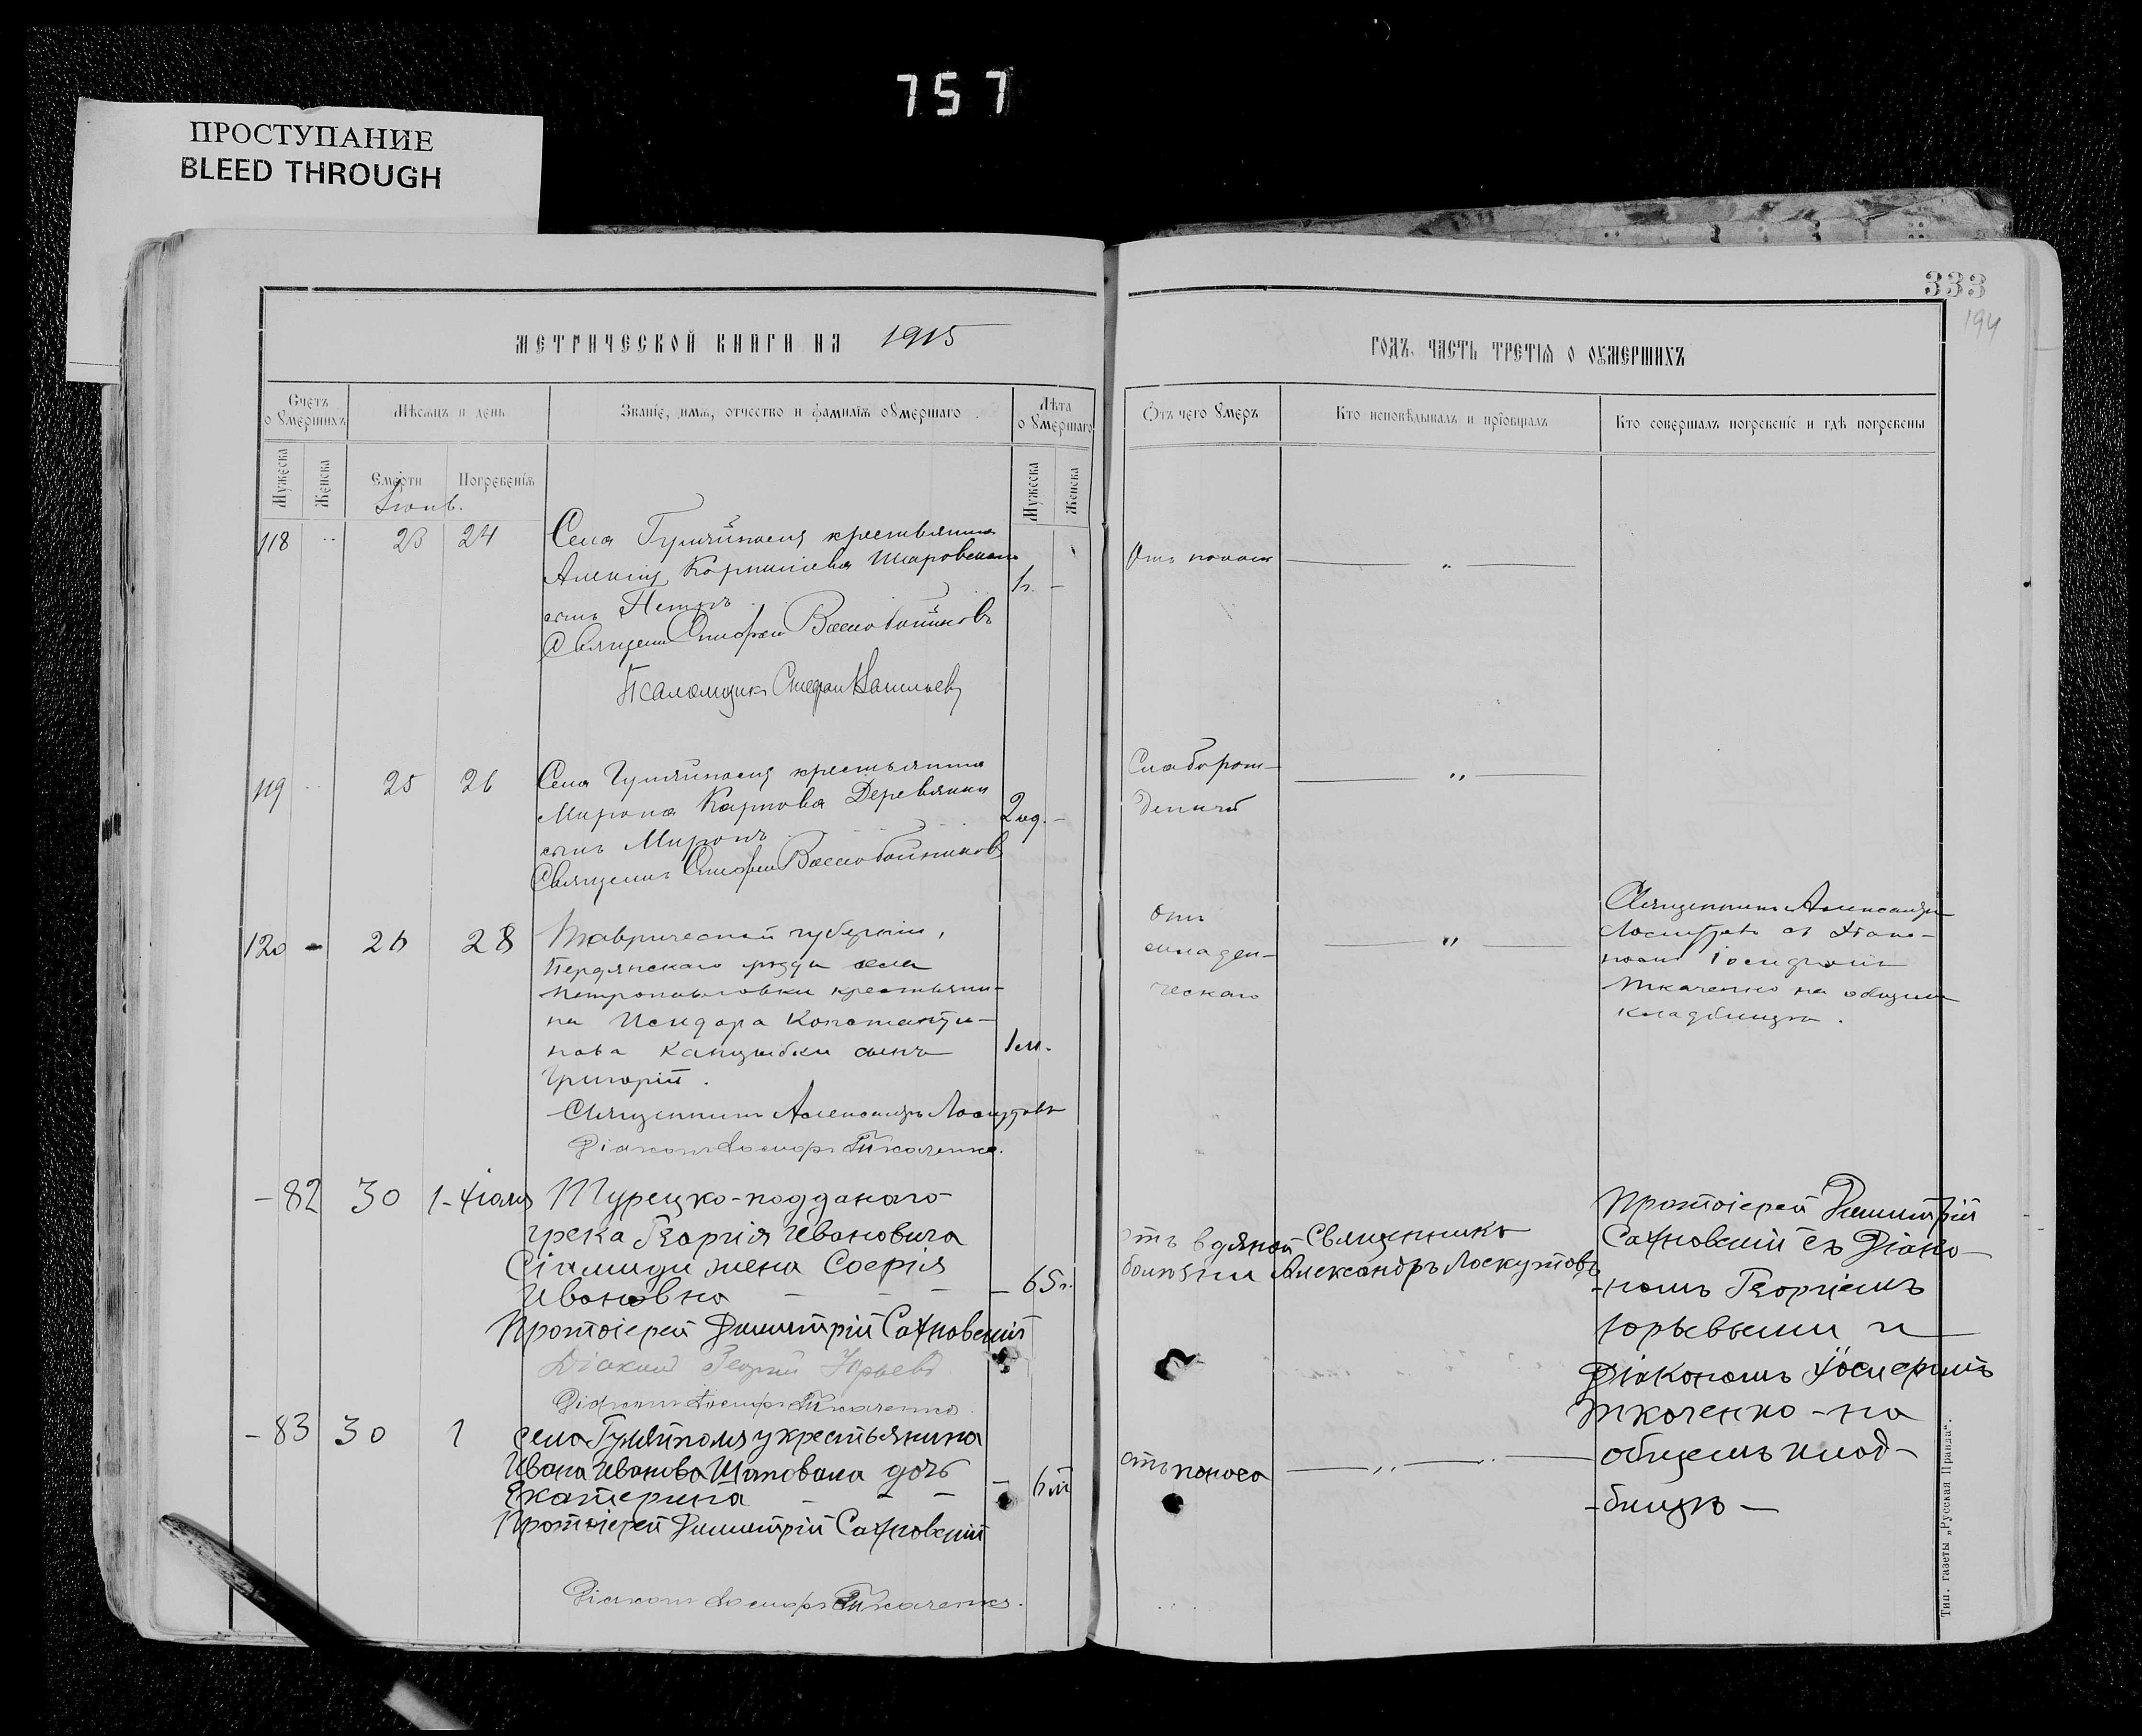 757
ПРОСТУПАНИЕ
BLEED THROUGH
333
194
МЕТРИЧЕСКОЙ КНИГИ НА 1915
ГОДЪ. ЧАСТЬ ТРЕТІЯ О ОУМЕРШИХЪ
Счетъ оумершихъ
Мѣсяцъ и день
Званіе, имя, отчество и фамилія оумершаго
Лѣта оумершаго
Отъ чего умеръ
Кто исповѣдывалъ и пріобщалъ
Кто совершалъ погребеніе и гдѣ погребены
Мужеска
Женска
Смерти
Погребенія
Мужеска
Женска
118 23 24
Села Гуляйполя крестьянина
Алексія Шаровскаго
сынъ Петръ
1 г. -
Отъ поноса
Священ Стефан
Псаломщик Стефан
119 25 26
Села Гуляйполя крестьянина
Мирона Карпова Деревянки
сынъ Миронъ
2 нед. -
Слаборож-
денный
Священник Стефан
120 - 26 28
Таврической губерніи,
Бердянскаго уѣзда села
Петропавловки крестьяни-
на Исидора Константи-
нова сынъ
Григорій.
1 м.
Отъ
младен-
ческаго
Священникъ Александръ
Лоскутовъ съ діако-
номъ Іосифомъ
Ткаченко на общемъ
кладбищѣ.
Священникъ Александръ Лоскутовъ
Діаконъ Іосифъ Ткаченко.
- 82 30 1 - Іюля
Турецко-подданаго
грека Георгія Ивановича
жена Софія
Ивановна
- 65 г.
отъ водяной
болѣзни
Священникъ
Александръ Лоскутовъ
Протоіерей Димитрій
Сахновскій съ Діако-
-номъ Георгіемъ
Юрьевымъ и
Діакономъ Іосифомъ
Ткаченко - на
общемъ клад-
-бищѣ -
Протоіерей Димитрій Сахновскій
Діаконъ Георгій Юрьевъ
Діаконъ Іосифъ Ткаченко
- 83 30 1
села Гуляйполя крестьянина
Ивана Иванова Шаповала дочь
Екатерина
- 6 м
отъ поноса
Протоіерей Димитрій Сахновскій
Діаконъ Іосифъ Ткаченко.
Тип. газеты „Русская Правда".